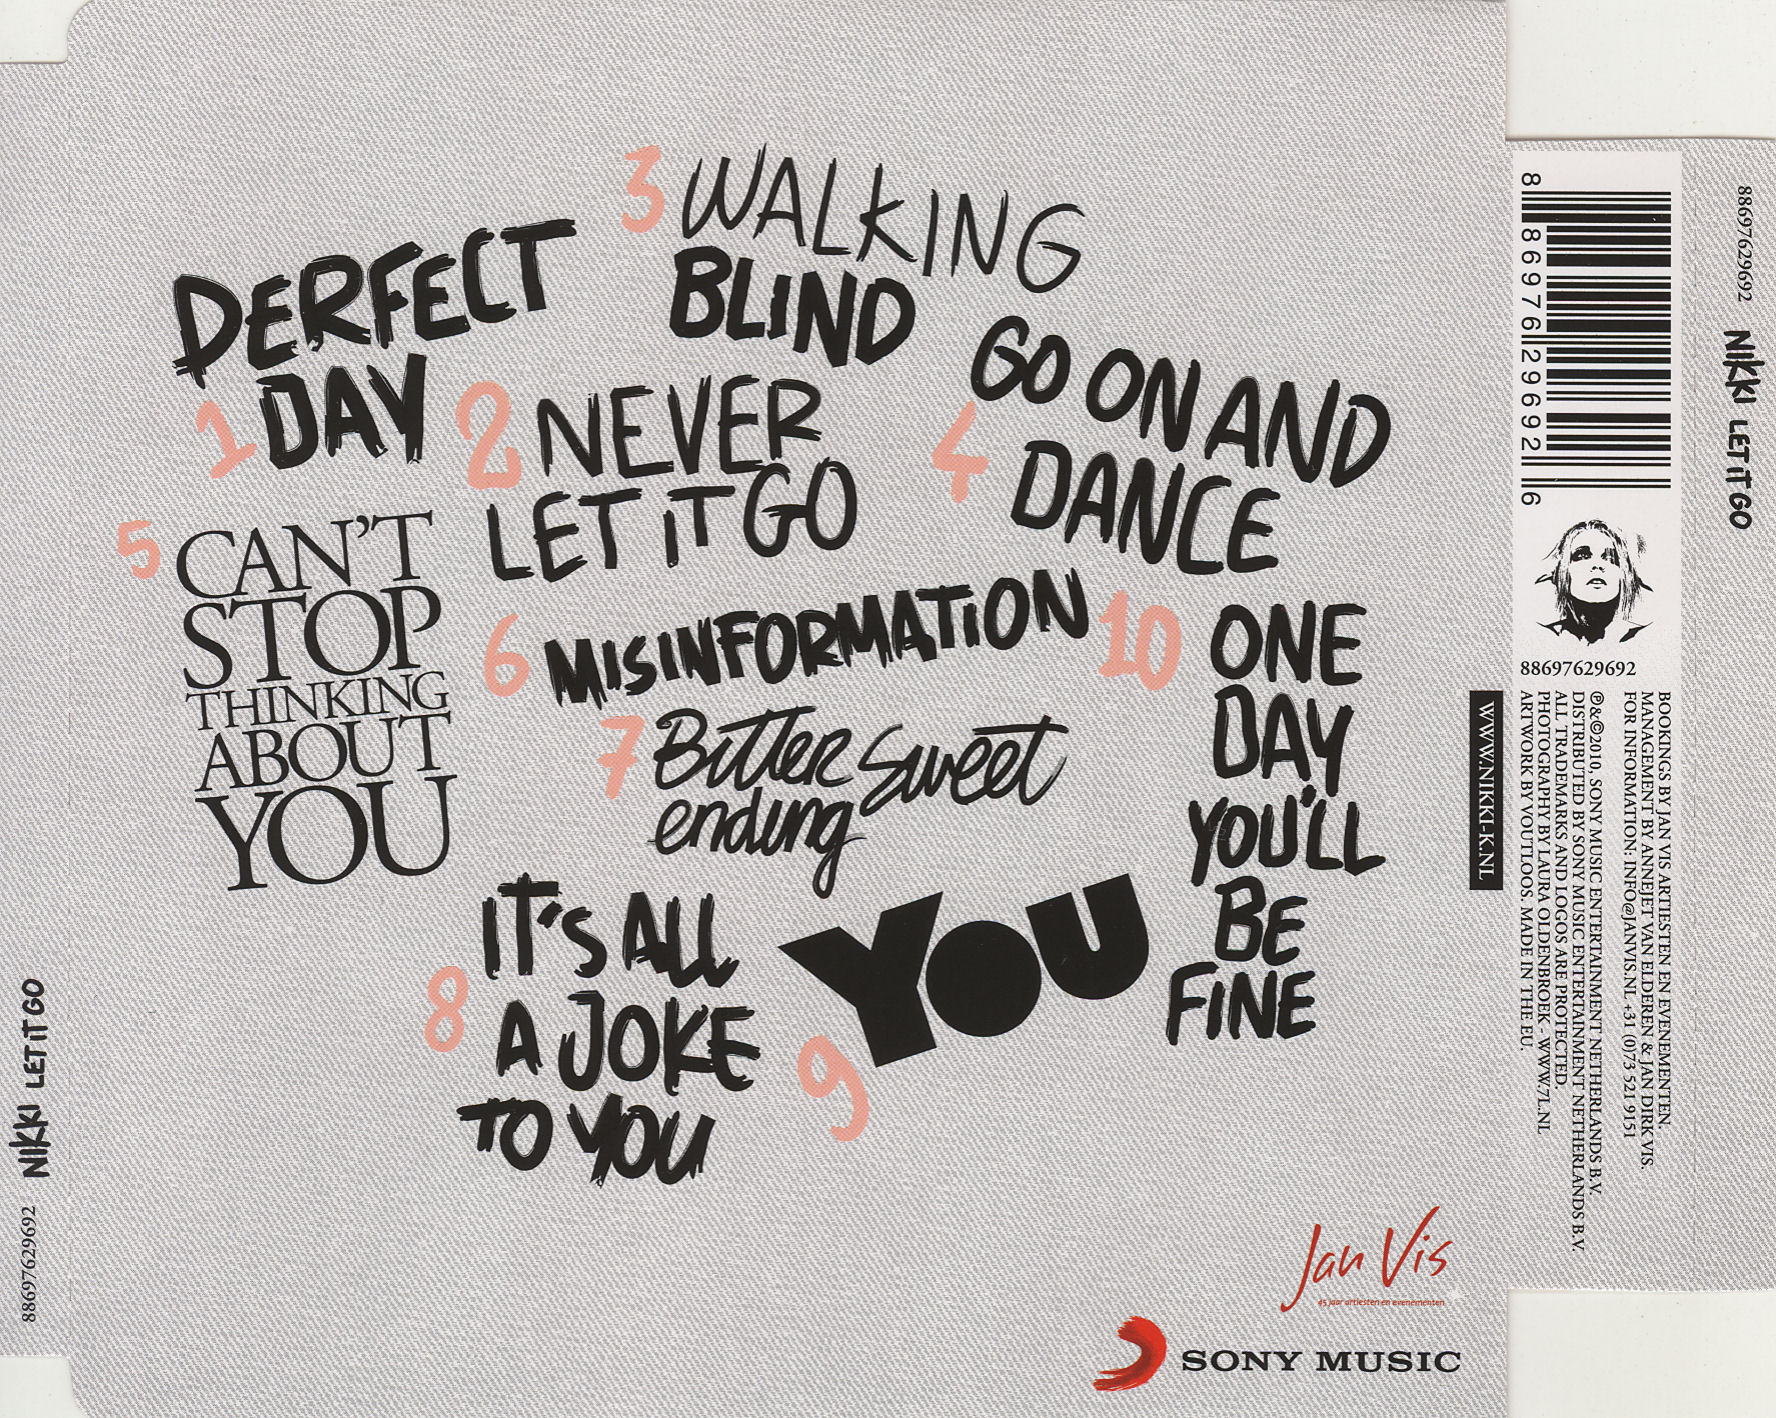 PERFECT
1 DAY
2 NEVER
LET IT GO
3 WALKING
BLIND
GO ON AND
4 DANCE
5 CAN'T
STOP
THINKING
ABOUT
YOU
6 MISINFORMATION
7 Bitter Sweet
ending
8 IT'S ALL
A JOKE
TO YOU
9 YOU
10 ONE
DAY
YOU'LL
BE
FINE
Jan Vis
45 jaar artiesten en evenementen
SONY MUSIC
NIKKI LET IT GO
88697629692
WWW.NIKKI-K.NL
8 86976 29692 6
88697629692
BOOKINGS BY JAN VIS ARTIESTEN EN EVENEMENTEN.
MANAGEMENT BY ANNEJET VAN ELDEREN & JAN DIRK VIS.
FOR INFORMATION: INFO@JANVIS.NL +31 (0)73 521 9151
℗&©2010, SONY MUSIC ENTERTAINMENT NETHERLANDS B.V.
DISTRIBUTED BY SONY MUSIC ENTERTAINMENT NETHERLANDS B.V.
ALL TRADEMARKS AND LOGOS ARE PROTECTED.
PHOTOGRAPHY BY LAURA OLDENBROEK - WWW.7L.NL
ARTWORK BY VOUTLOOS. MADE IN THE EU.
88697629692
NIKKI LET IT GO